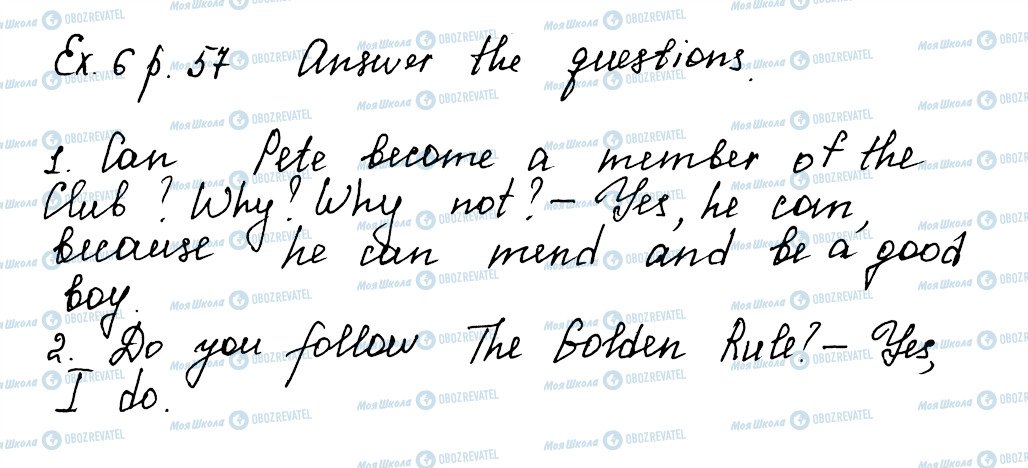 Ex. 6 p. 57 Answer the questions.
1. Can Pete become a member of the
Club? Why? Why not? – Yes, he can,
because he can mend and be a good
boy.
2. Do you follow The Golden Rule? – Yes,
I do.